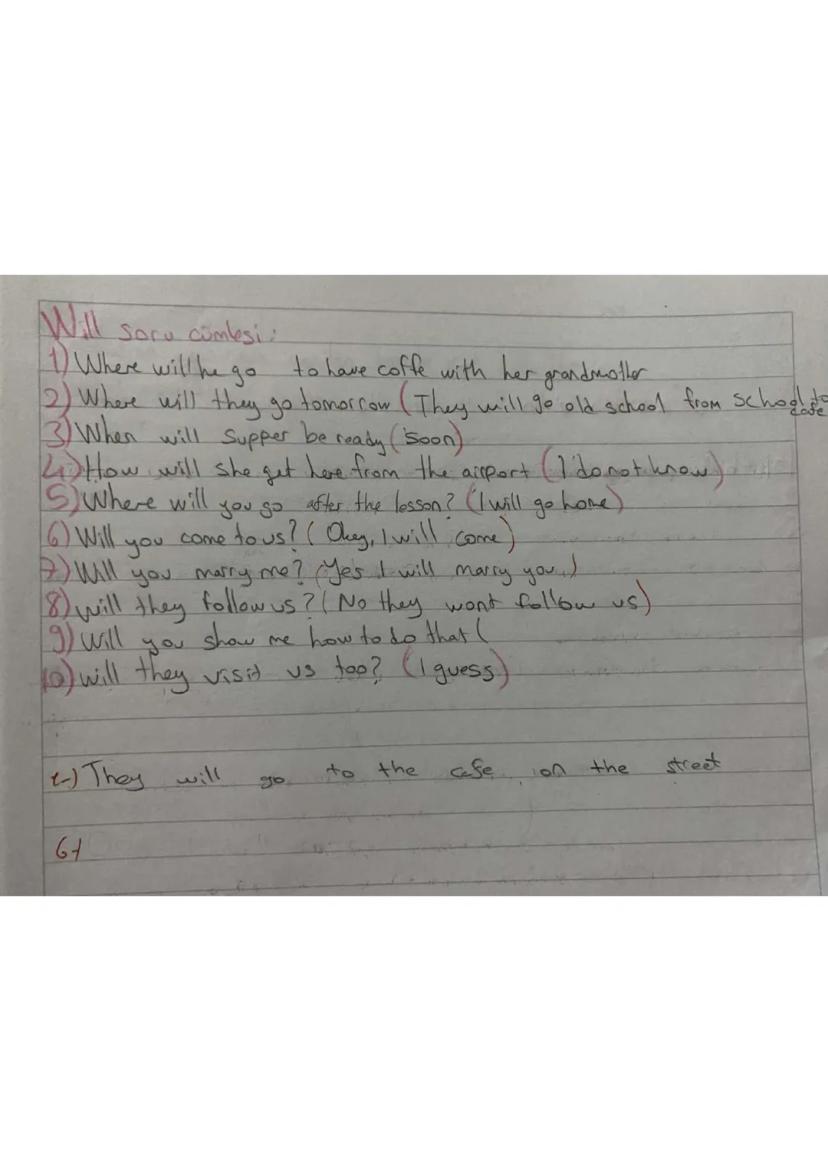 Will soru cümlesi:
1) Where will he go to have coffe with her grandmother
2) Where will they go tomorrow (They will go old school from school to cafe
3) When will supper be ready (soon)
4) How will she get here from the airport (I do not know)
5) Where will you go after the lesson? (I will go home)
6) Will you come to us? (Okey, I will come)
7) Will you marry me? (Yes I will marry you.)
8) will they follow us? (No they wont follow us)
9) Will you show me how to do that (
10) will they visit us too? (I guess)
They will go to the cafe on the street